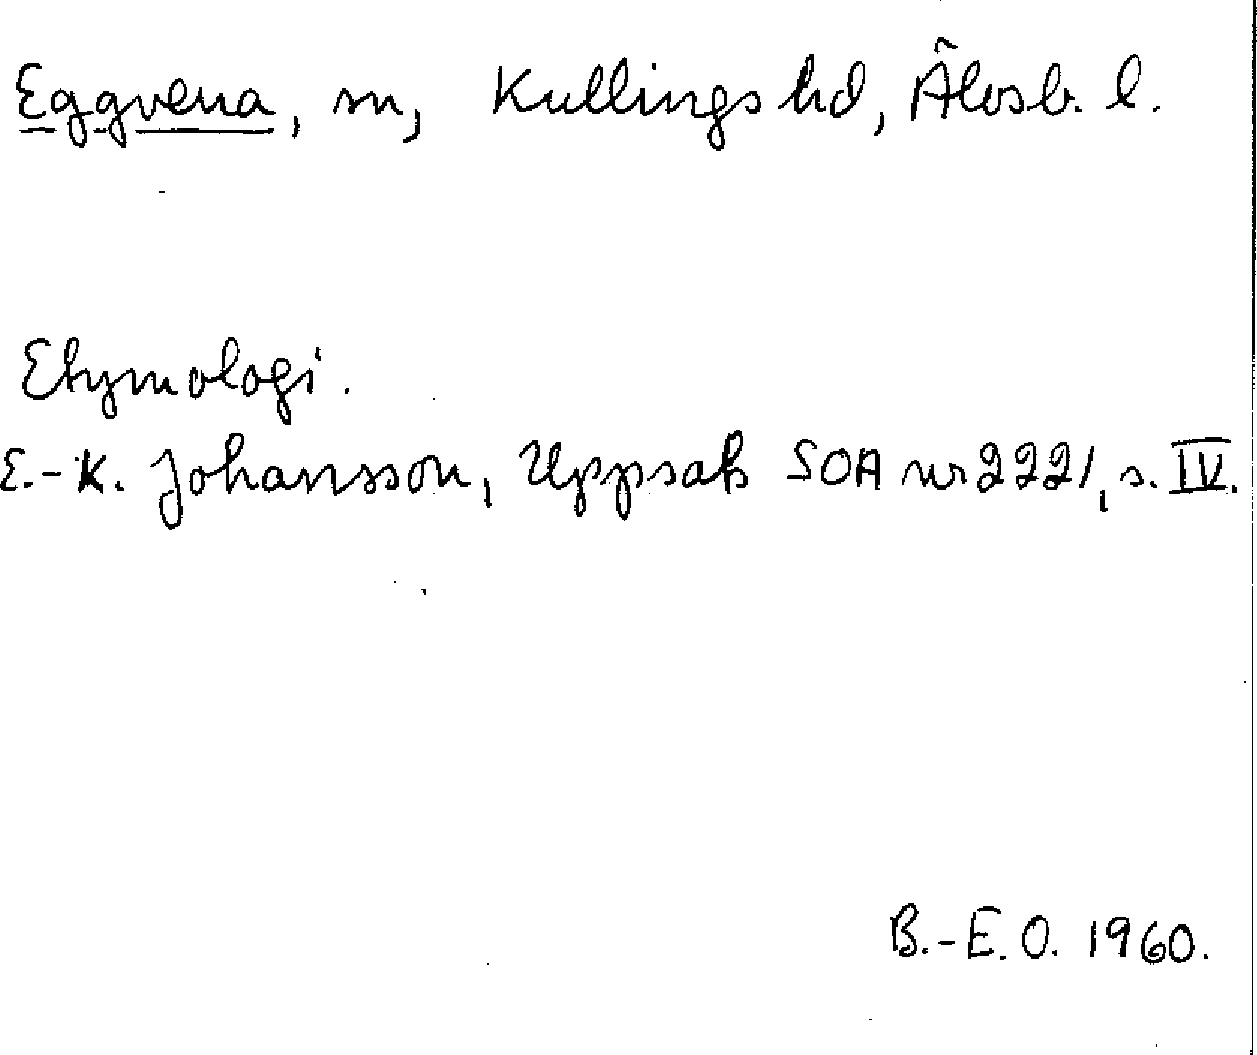 Eggvena, sn, Kullings hd, Älvsb. l.
Etymologi.
E.-K. Johansson, Uppsats SOA nr 2221, s. IV.
B.-E. O. 1960.